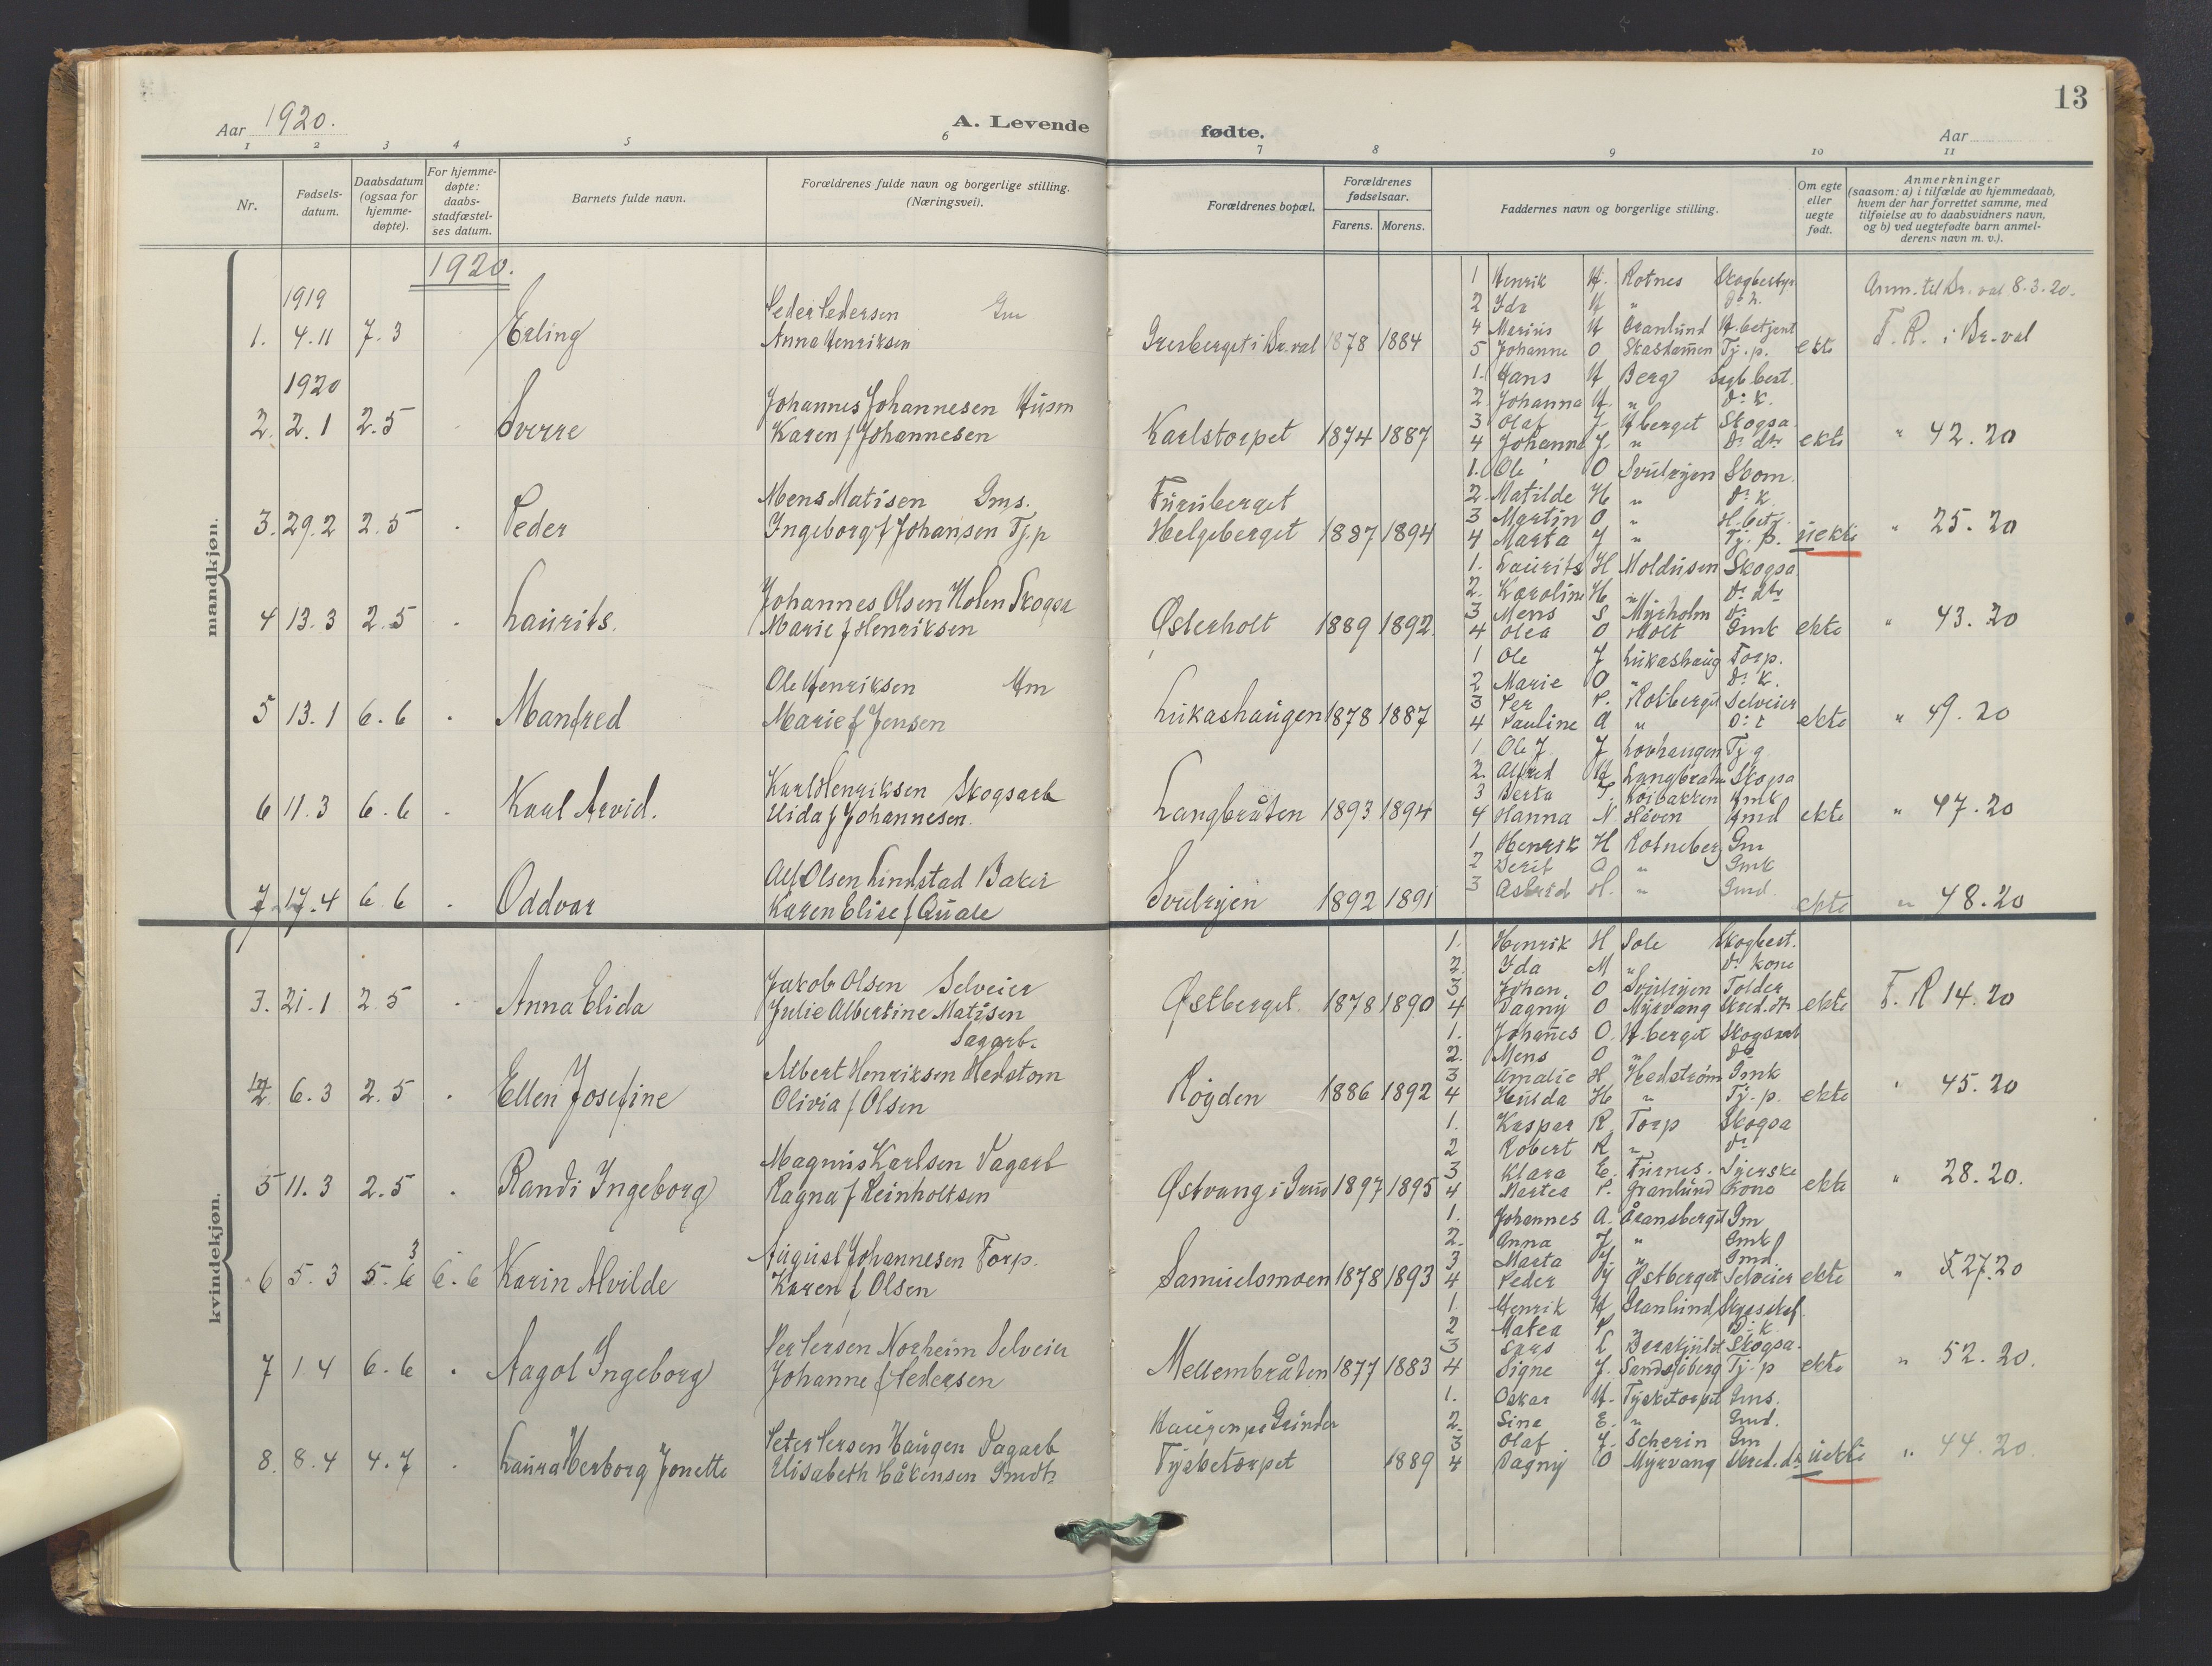 13
Aar 1920.
A. Levende fødte.
Aar
1 2 3 4 5 6 7 8 9 10 11
Nr.
Fødsels-datum.
Daabsdatum (ogsaa for hjemme-døpte).
For hjemme-døpte: daabs-stadfæstel-ses datum.
Barnets fulde navn.
Forældrenes fulde navn og borgerlige stilling. (Næringsvei).
Forældrenes bopæl.
Forældrenes fødselsaar.
Farens. Morens.
Faddernes navn og borgerlige stilling.
Om egte eller uegte født.
Anmerkninger
(saasom: a) i tilfælde av hjemmedaab, hvem der har forrettet samme, med tilføielse av to daabsvidners navn, og b) ved uegtefødte barn anmel-derens navn m. v.).
mandkjøn.
1920.
1919
1. 4.11 7.3 Erling
Peder Pedersen Gm
Anna Henriksen
Br.val 1878 1884
1 Henrik H. Rotnes
2 Ida H "
4 Marius H Granlund H.betjent
5 Johanne O Tj.p. ekte
Anm. til Br.val 8.3.20.
F. R. i Br.val
1920
2. 2.1 2.5 Sverre
Johannes Johannesen Husm
Karen f Johannesen
Karlstorpet 1874 1887
1. Hans H Berg
2. Johanna H. " Do k.
3 Olaf J. H berget Skogsa
4 Johanne J. " Do dtr ekte
" 42.20
3. 29.2 2.5 Peder
Mens Matisen Gms.
Ingeborg f Johansen Tj.p
Furuberget
Helgeberget 1887 1894
1. Ole O Svulryen Skom.
2. Matilde H " Do k
3 Martin O " H.betj.
4 Marta J " Tj.p. uekte
" 25.20
4 13.3 2.5 Laurits.
Johannes Olsen Holen Skogsa
Marie f Henriksen
Østerholt 1889 1892
1. Laurits H Moldusen Skogsa
2. Karoline H " Do dtr
3 Mens S Myrholm Do
4 Olea O Holt Gmk ekte
" 43.20
5 13.1 6.6 Manfred
Ole Henriksen Hm
Marie f Jensen
Lukashaugen 1878 1887
1 Ole J Lukashaug Torp.
2 Marie O " Do K.
3 Per P. Rotberget Selveier
4 Pauline A " ekte
" 49.20
6 11.3 6.6 Karl Arvid.
Karl Henriksen Skogsarb
f Johannesen.
Langbråten 1893 1894
1. Ole J J Lovhaugen Tj g
2. Alfred H Langbråten Skogsa
3 Berta
4 Hanna N Håven Gmd ekte
" 47.20
7 17.4 6.6 Oddvar
Alf Olsen Lindstad Baker
Karen Elise f Quale
Svulryen 1892 1891
1 Henrik H Rotneberg Gm
2 Berit O " Gmk
3 Astrid H. " Gmd. ekte
" 48.20
kvindekjøn.
3. 21.1 2.5 Anna Elida
Jakob Olsen Selveier
Julie Albertine Matisen
Østberget 1878 1890
1. Henrik H Sole Skogbest.
2. Ida M " Do kone
3 Johan. O Svulryen Tolder
4 Dagny O Myrvang ekte
F. R 14.20
6.3 2.5 Ellen Josefine
Sagarb.
Albert Henriksen Hedstom
Olivia f Olsen
Røgden 1886 1892
1. Johanes O. H.berget Skogsarb
2. Mens O " Do
3 Amalie H. Hedstrøm Gmk
4 Hulda H " Tj.p. ekte
" 45.20
5 11.3 2.5 Randi Ingeborg
Magnus Karlsen Vagarb
Ragna f Reinholtsen
Østvang i Grue 1897 1895
1. Kaspar R Torp Skogsa
2 Robert R " Do
3 Klara E. Furnes. Syerske
4 Martea P. Granlund Kone ekte
" 28.20.
6 5.3 5.6 3 6.6 Karin Alvilde
August Johannesen Torp.
Karen f Olsen
Samuelsmoen 1878 1893
1. Johannes A. Åransberget Gm
2. Anna J. " Gmk
3 Marta " Gmd.
4 Peder Østberget Selveier ekte
" 27.20
7 1.4 6.6 Aagot Ingeborg
Per Persen Norheim Selveier
Johanne f Pedersen
Mellembråten 1877 1883
1. Henrik H Granlund Skysskaf.
2 Matea P. " Do k.
3 Lars L Skogsa.
4 Signe J. Sandsjöberg Tj.p ekte
" 52.20.
8. 8.4 4.7 Laura Herborg Jonette
Peter Persen Haugen Vagarb
Elisabeth Håkensen Gmdtr
Haugen på Grinder
Tysketorpet 1889
1. Oskar H. Tysketorpet Gms.
2. Sina E. " Gmd.
3 Olaf J. Scherin Gm
4 Dagny O Myrvang uekte
" 44.20